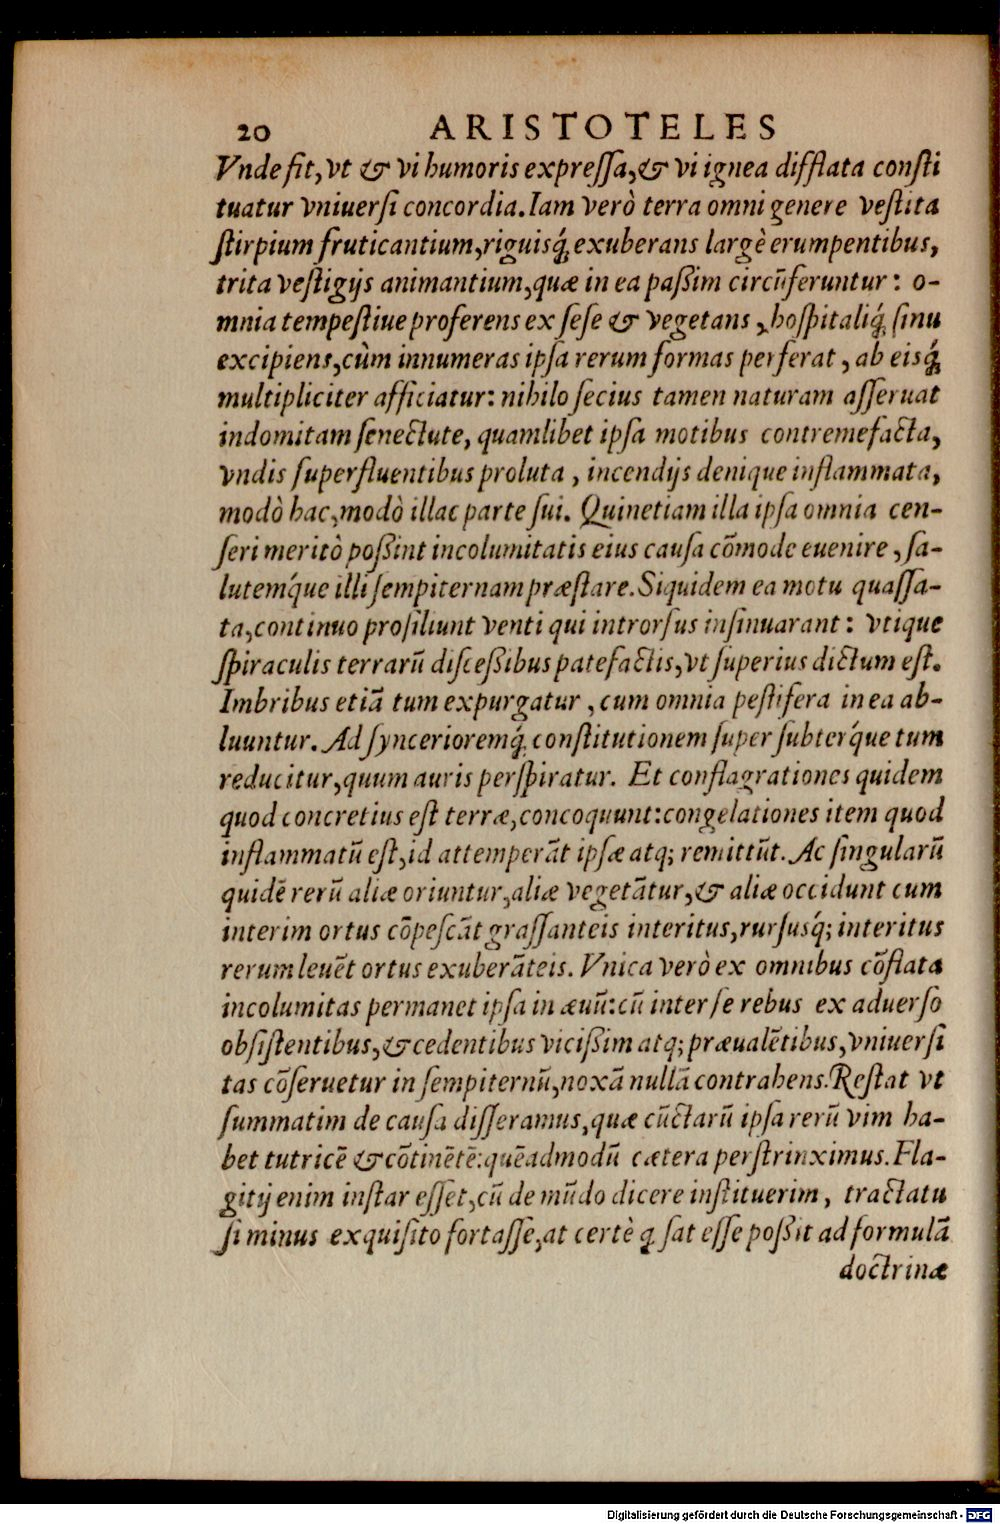 20 ARISTOTELES
Vnde fit, vt & vi humoris expressa, & vi ignea difflata consti
tuatur vniuersi concordia. Iam verò terra omni genere vestita
stirpium fruticantium, riguisq́; exuberans largè erumpentibus,
trita vestigijs animantium, quæ in ea paßim circũferuntur: o-
mnia tempestiue proferens ex sese & vegetans, hospitaliq́; sinu
excipiens, cùm innumeras ipsa rerum formas perferat, ab eisq́;
multipliciter afficiatur: nihilo secius tamen naturam asseruat
indomitam senectute, quamlibet ipsa motibus contremefacta,
vndis superfluentibus proluta, incendijs denique inflammata,
modò hac, modò illac parte sui. Quinetiam illa ipsa omnia cen-
seri meritò poßint incolumitatis eius causa cõmode euenire, sa-
lutemq́ue illi sempiternam præstare. Siquidem ea motu quassa-
ta, continuo prosiliunt venti qui introrsus insinuarant: vtique
spiraculis terrarũ disceßibus patefactis, vt superius dictum est.
Imbribus etiã tum expurgatur, cum omnia pestifera in ea ab-
luuntur. Ad syncerioremq́; constitutionem super subterq́ue tum
reducitur, quum auris perspiratur. Et conflagrationes quidem
quod concretius est terræ, concoquunt: congelationes item quod
inflammatũ est, id attemperãt ipsæ atq; remittũt. Ac singularũ
quidẽ rerũ aliæ oriuntur, aliæ vegetãtur, & aliæ occidunt cum
interim ortus cõpescãt grassanteis interitus, rursusq́; interitus
rerum leuẽt ortus exuberãteis. Vnica verò ex omnibus cõflata
incolumitas permanet ipsa in æuũ: cũ inter se rebus ex aduerso
obsistentibus, & cedentibus vicißim atq; præualẽtibus, vniuersi
tas cõseruetur in sempiternũ, noxã nullã contrahens. Restat vt
summatim de causa disseramus, quæ cũctarũ ipsa rerũ vim ha-
bet tutricẽ & cõtinẽtẽ: quẽadmodũ cætera perstrinximus. Fla-
gitij enim instar esset, cũ de mũdo dicere instituerim, tractatu
si minus exquisito fortasse, at certè ꝗ sat esse poßit ad formulã
doctrinæ
Digitalisierung gefördert durch die Deutsche Forschungsgemeinschaft - DFG